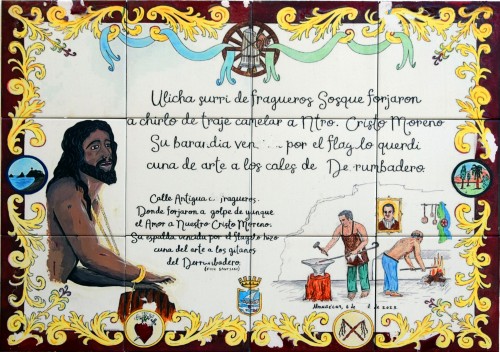 Ulicha surri de fragueros Sosque forjaron
a chirlo de traje camelar a Ntro. Cristo Moreno
Su barandia ven por el flag lo querdi
cuna de arte a los cales de De rumbadero.
Calle Antigua fragueros.
Donde forjaron a golpe de yunque
el Amor a Nuestro Cristo Moreno.
Su espalda vencida por el flagelo hizo
cuna del arte a los gitanos
del Derrumbadero.
Almuñécar, 2 de 2022